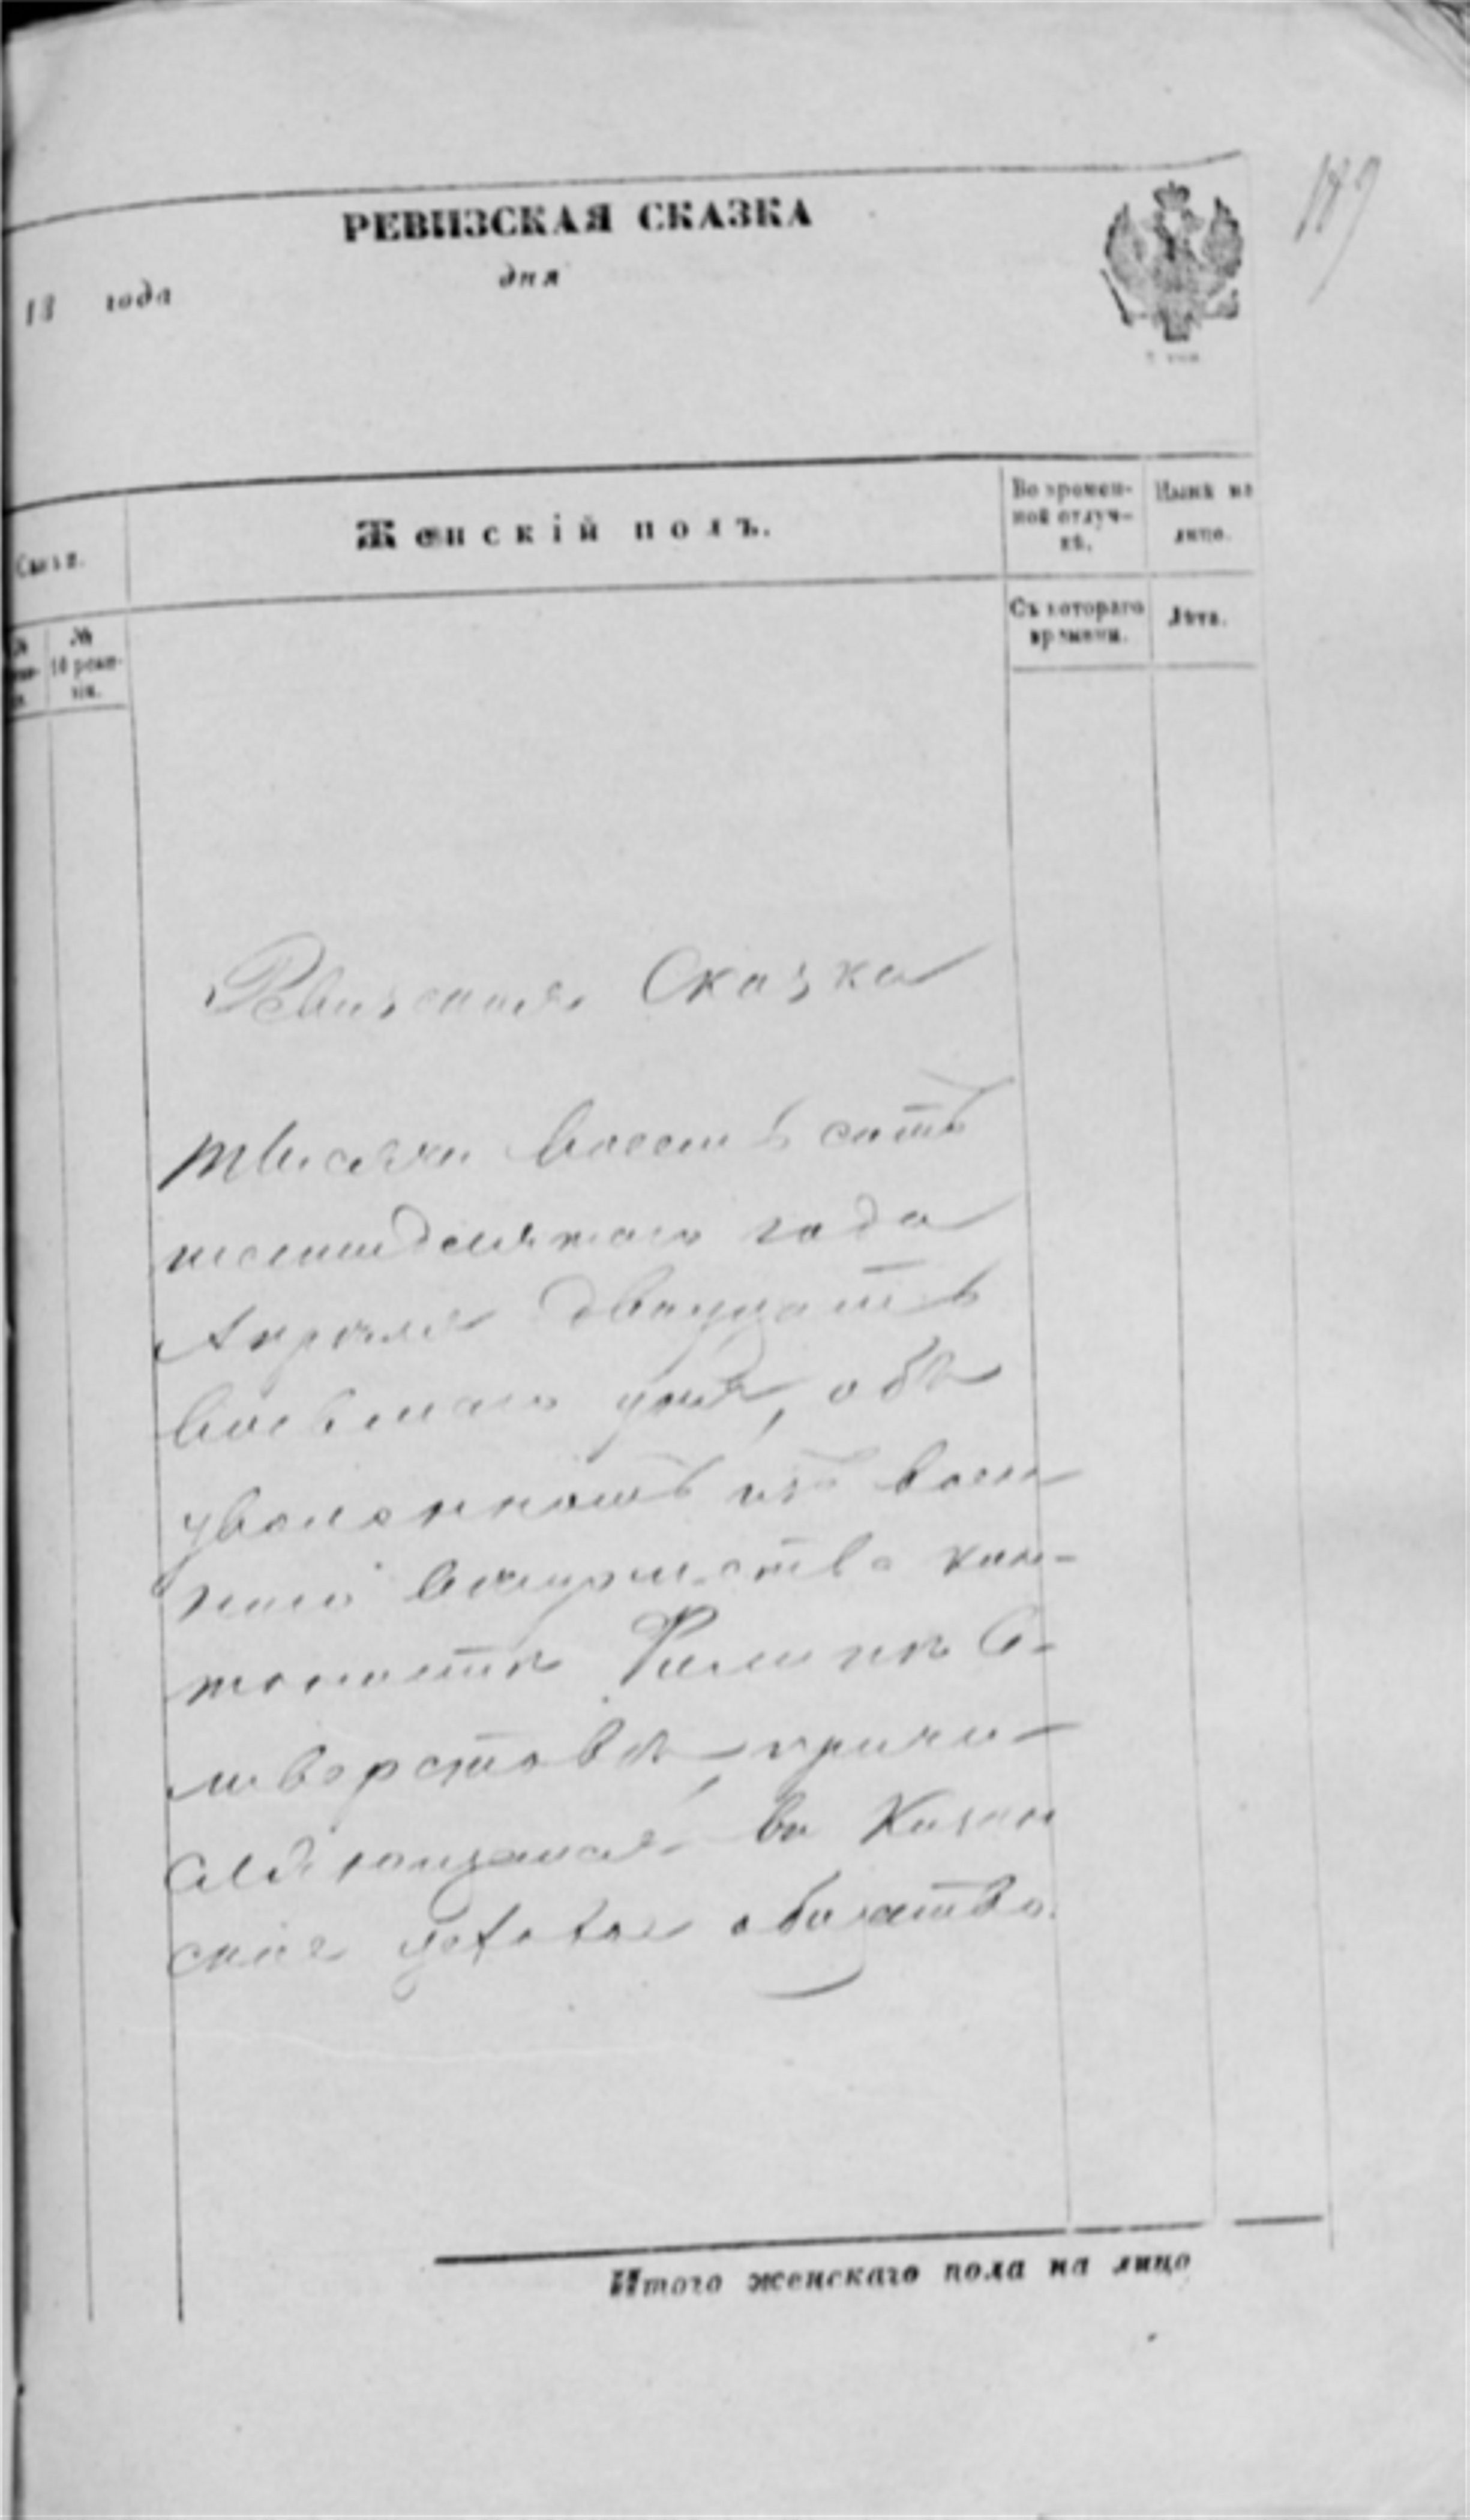 189
РЕВИЗСКАЯ СКАЗКА
18 года дня
Семьи.
Женскій полъ.
Во времен-
ной отлуч-
кѣ.
Нынѣ на
лицо.
№
10 реви-
зіи.
Съ котораго
времени.
Лѣта.
Ревизская Сказка
тысяча восемь сотъ
шестидесятаго года
Апреля двадцать
восьмаго дня, объ
уволенномъ изъ воен
наго ведомства кан-
тонисте Се-
ливерстове, причи
сляющемся въ Казан
ское цеховое общество.
Итого женскаго пола на лицо